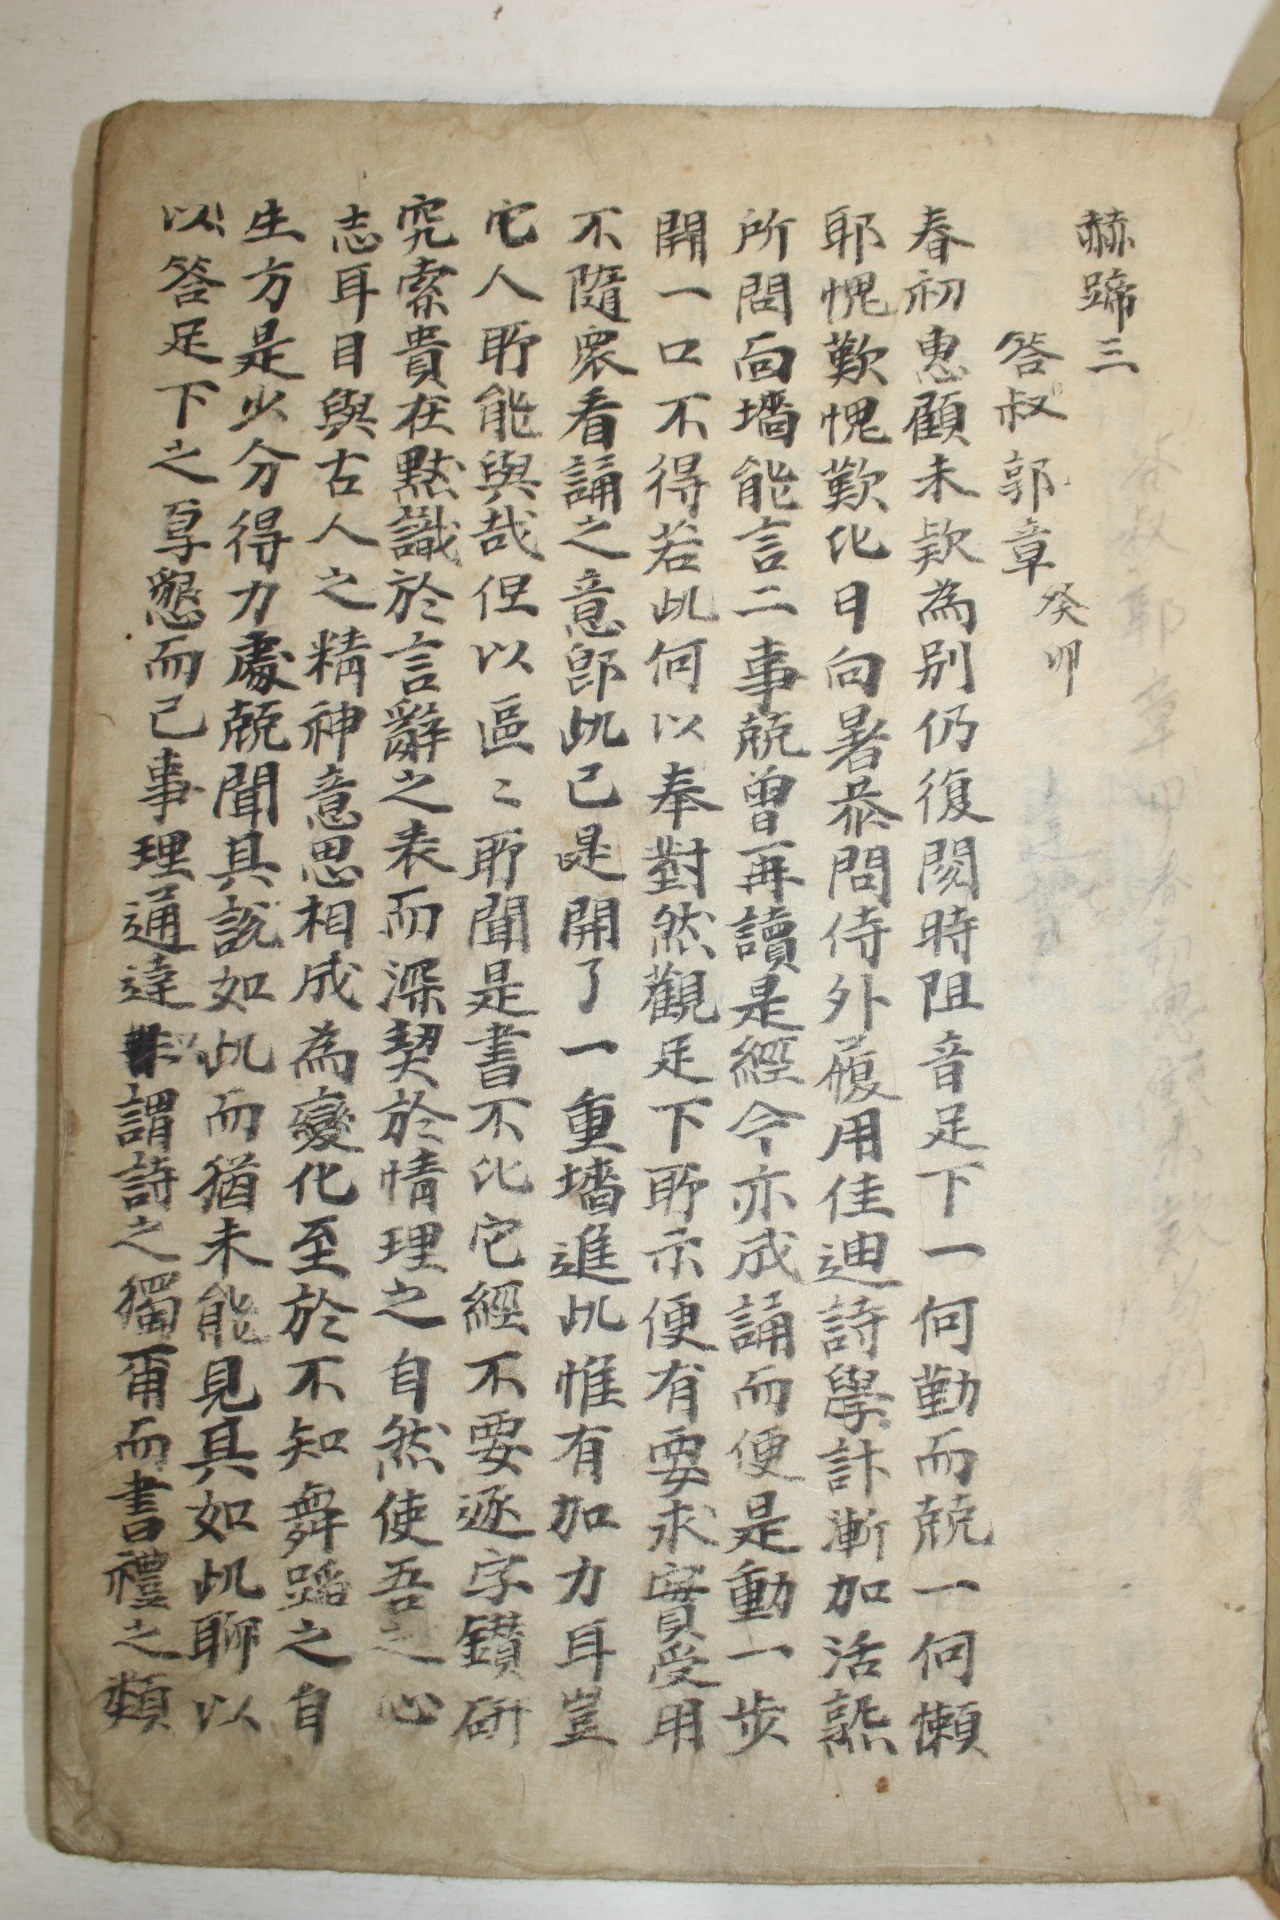 赫蹄三
答叔郭章 癸卯
春初惠顧未款為別仍復閱時阻音足下一何勤而兢一何懶
耶愧歎愧歎化日向暑恭問侍外履用佳迪詩學計漸加活熟
所問面墻能言二事兢曾再讀是經今亦成誦而便是動一步
開一口不得若此何以奉對然觀足下所示便有要求實受用
不隨衆看誦之意卽此已是開了一重墻進此惟有加力耳豈
它人所能與哉但以區〻所聞是書不比它經不要逐字鑽研
究索貴在默識於言辭之表而深契於情理之自然使吾之心
志耳目與古人之精神意思相成為變化至於不知舞蹈之自
生方是少分得力處兢聞其說如此而猶未能見其如此聊以
以答足下之辱懇而已事理通達 謂詩之獨爾而書禮之類